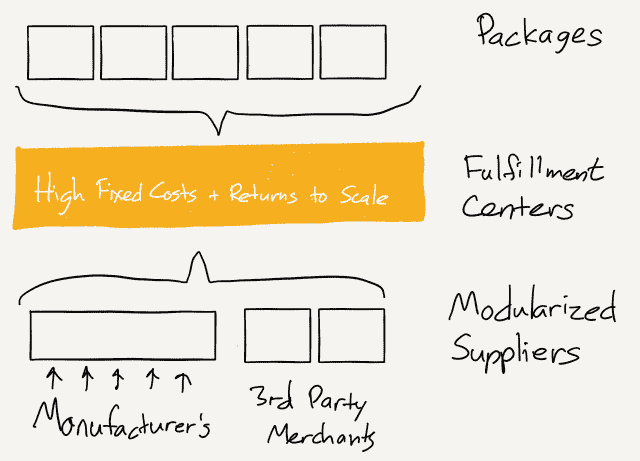 Packages
High Fixed Costs + Returns to Scale
Fulfillment
Centers
Modularized
Suppliers
Manufacturer's
3rd Party
Merchants